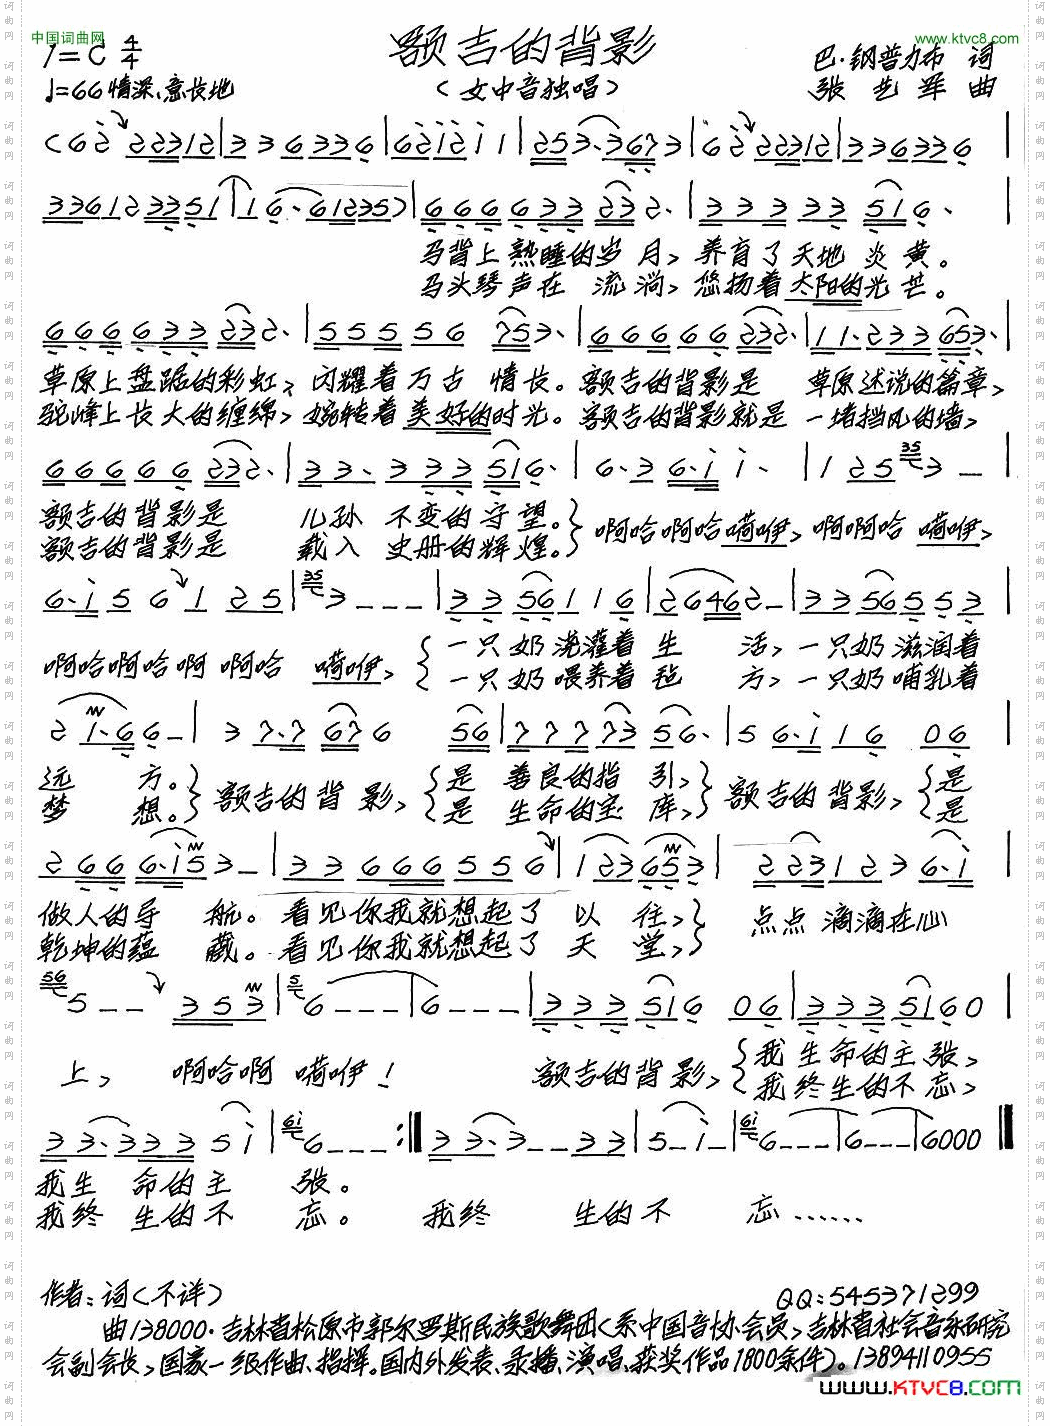 中国词曲网
www.ktvc8.com
额吉的背影
1=C 4/4
巴·钢普力布 词
♩=66 情深、意长地
（女中音独唱）
张艺军 曲
马背上熟睡的岁月，养育了天地炎黄。
马头琴声在流淌，悠扬着太阳的光芒。
草原上盘踞的彩虹，闪耀着万古情长。额吉的背影是 草原述说的篇章，
驼峰上长大的缠绵，婉转着美好的时光。额吉的背影就是 一堵挡风的墙，
额吉的背影是 儿孙不变的守望。 啊哈啊哈嗬咿，啊啊哈 嗬咿，
额吉的背影是 载入史册的辉煌。
啊哈啊哈啊 啊哈 嗬咿， 一只奶浇灌着生活，一只奶滋润着
一只奶喂养着毡方，一只奶哺乳着
远方。 额吉的背影， 是善良的指引， 额吉的背影， 是
梦想。 是生命的宝库， 是
做人的导航。看见你我就想起了以往， 点点滴滴在心
乾坤的蕴藏。看见你我就想起了天堂，
上， 啊哈啊 嗬咿！ 额吉的背影， 我生命的主张，
我终生的不忘，
我生命的主张。
我终生的不忘。 我终 生的不 忘……
作者：词（不详） QQ:545371299
曲138000·吉林省松原市郭尔罗斯民族歌舞团（系中国音协会员，吉林省社会音乐研究
会副会长，国家一级作曲、指挥。国内外发表、录播、演唱、获奖作品1800余件）。13894110955
www.KTVC8.COM